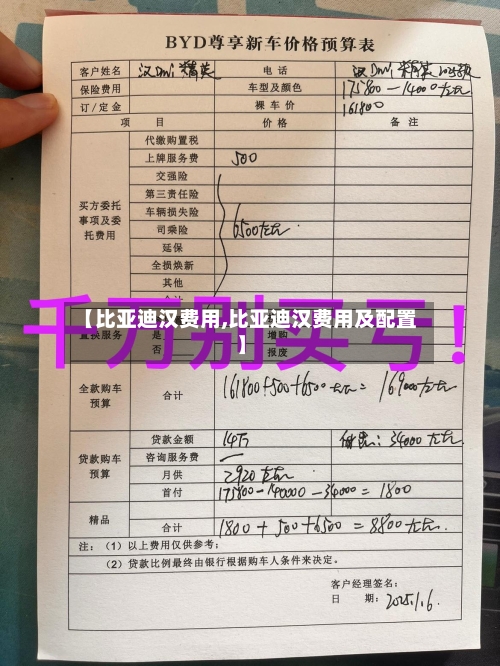 BYD尊享新车价格预算表
客户姓名 汉Dmi 精英 电话 汉Dmi 精英 2025款
保险费用 车型及颜色 175800-14000左右
订/定金 裸车价 161800
项目 价格 备注
代缴购置税
上牌服务费 500
交强险
第三责任险
买方委托事项及委托费用 车辆损失险
司乘险 6500左右
延保
全损焕新
其他
合计
千万别买亏!
【比亚迪汉费用,比亚迪汉费用及配置
】
置换服务 是 增购
否 报废
全款购车预算 合计 161800+500+6500左右= 169000左右
贷款金额 14万 34000左右.
咨询服务费 一
贷款购车预算 月供 2920左右.
首付 175800-140000-34000=1800
精品
合计 1800+500+6500=8800左右.
注:(1)以上费用仅供参考;
(2)贷款比例最终由银行根据购车人条件来决定。
客户经理签名:
日期: 2025.1.6.